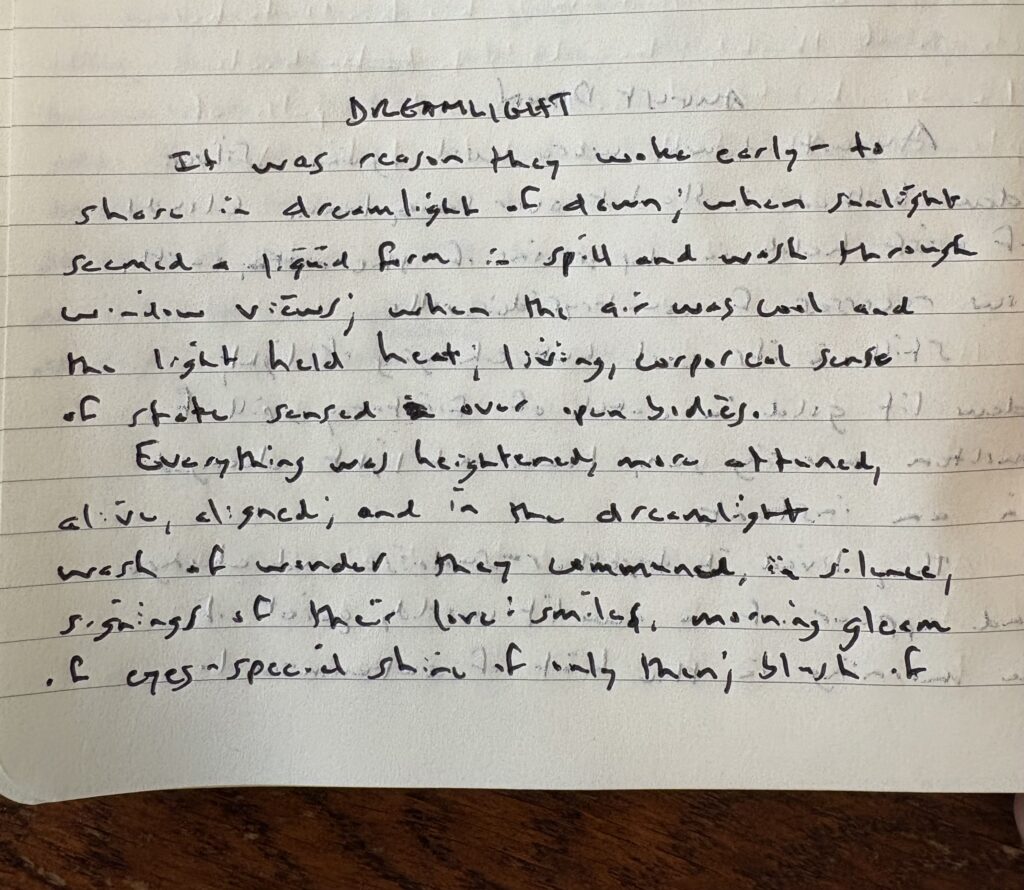 DREAMLIGHT
It was reason they woke early - to
share in dreamlight of dawn; when sunlight
seemed a liquid form in spill and wash through
window views; when the air was cool and
the light held heat; living, corporeal sense
of state sensed over open bodies.
Everything was heightened, more attuned,
alive, aligned; and in the dreamlight
wash of wonder they communed, in silence,
signings of their love: smiles, morning gleam
of eyes - special shine of only then; blush of